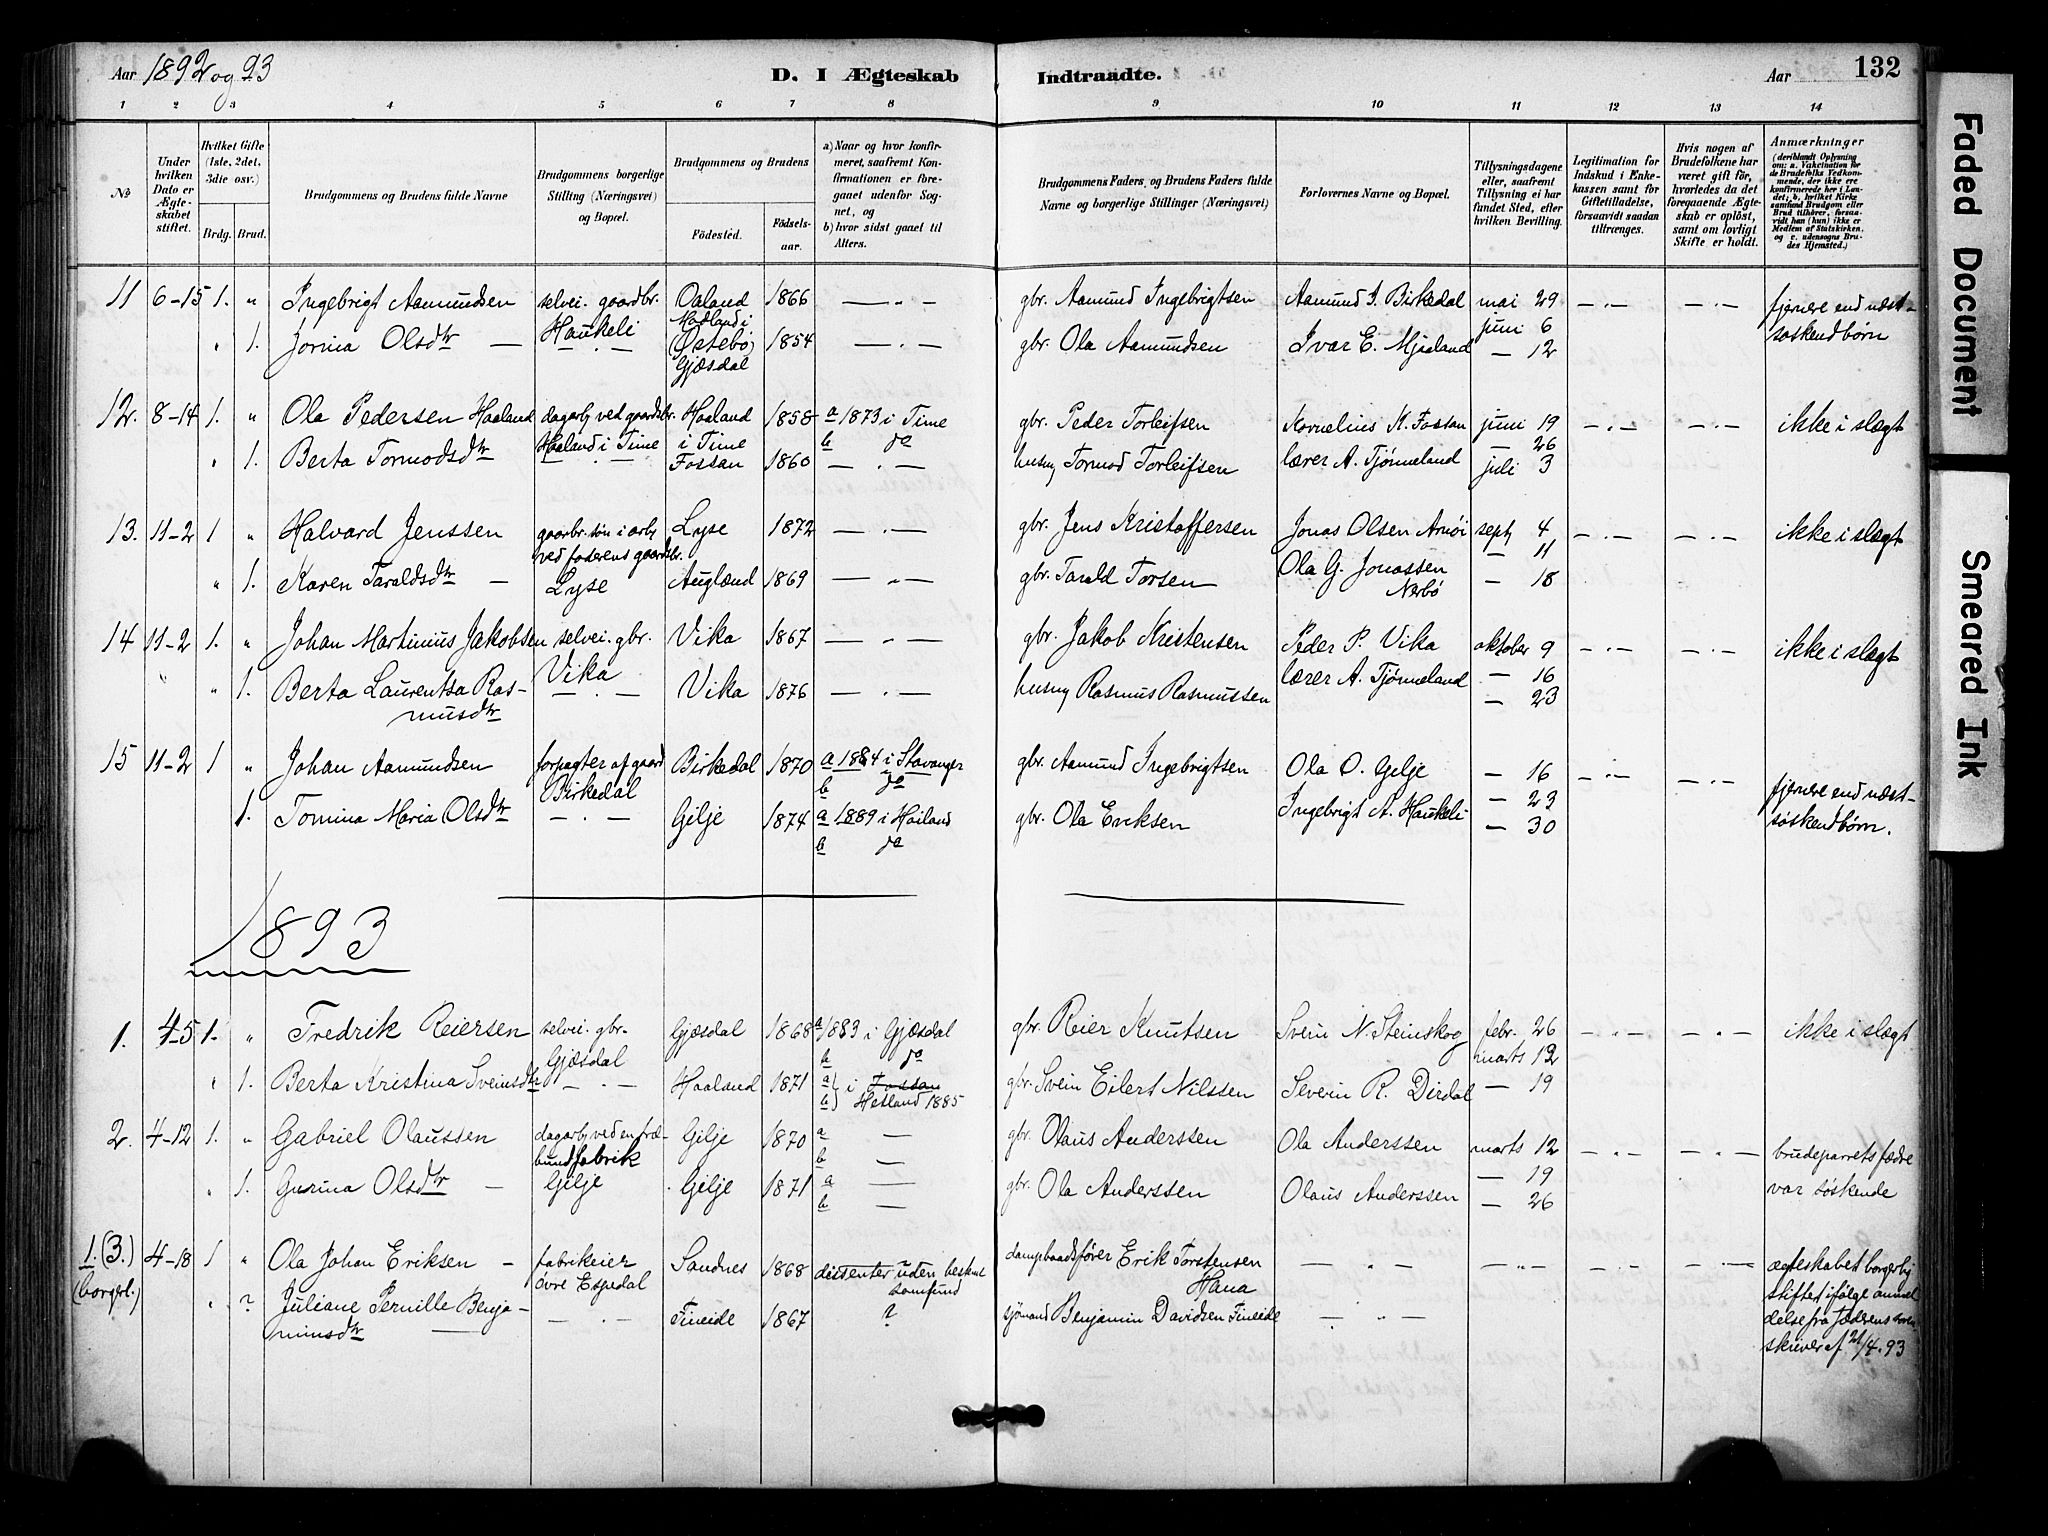 Aar 1892 og 93
D. I Ægteskab Indtraadte.
Aar 132
1 2 3 4 5 6 7 8 9 10 11 12 13 14
№
Under hvilken Dato er Ægteskabet stiftet.
Hvilket Gifte (1ste, 2det, 3die osv.)
Brdg. Brud.
Brudgommens og Brudens fulde Navne
Brudgommens borgerlige Stilling (Næringsvei) og Bopæl.
Brudgommens og Brudens
Fødested.
Fødselsaar.
a) Naar og hvor konfirmeret, saafremt Konfirmationen er foregaaet udenfor Sognet, og
b) hvor sidst gaaet til Alters.
Brudgommens Faders, og Brudens Faders fulde Navne og borgerlige Stillinger (Næringsvei)
Forlovernes Navne og Bopæl.
Tillysningsdagene eller, saafremt Tillysning ei har fundet Sted, efter hvilken Bevilling.
Legitimation for Indskud i Enkekassen samt for Giftetilladelse, forsaavidt saadan tiltrænges.
Hvis nogen af Brudefolkene har været gift før, hvorledes da det foregaaende Ægteskab er opløst, samt om lovligt Skifte er holdt.
Anmærkninger
(deriblandt Oplysning om: a. Vakcination for de Brudefolks Vedkommende, der ikke ere konfirmerede her i Landet; b, hvilket Kirkesamfund Brudgom eller Brud tilhører, forsaavidt han (hun) ikke er Medlem af Statskirken. og c. udensogns Brudes Hjemsted.)
11 6-15 1. „ Ingebrigt Aamundsen selvei. gaardbr. Oaland 1866 — „ — gbr. Aamund Ingebrigtsen Aamund I. Birkedal mai 29 — „ — — „ — fjernere end næst-
Haukeli Madland i juni 6 søskendbørn
„ 1. Jorina Olsdtr — — „ — (Østebø) 1854 — „ — gbr. Ola Aamundsen Ivar E. Mjaaland — 12
Gjæsdal
12. 8-14 1. „ Ola Pedersen Haaland dagarb. ved gaardsbr. Haaland 1858 a 1873 i Time gbr. Peder Torleifsen Kornelius K. Fossan juni 19 — „ — — „ — ikke i slægt
Haaland i Time i Time b do — 26
„ 1. Berta Tormodsdtr — „ — Fossan 1860 — „ — husm Tormod Torleifsen lærer A. Tjønneland juli 3
13. 11-2 1 „ Halvard Jenssen gaardbr. søn i arb. Lyse 1872 — „ — gbr. Jens Kristoffersen Jonas Olsen Arnøi septb 4 — „ — — „ — ikke i slægt
ved faderens gaardsbr. — 11
„ 1. Karen Taraldsdtr — Lyse Auglænd 1869 — „ — gbr. Tarald Torsen Ola G. Jonassen — 18
Nerbø
14 11-2 1. „ Johan Martinius Jakobsen selvei. gbr. Vika 1867 — „ — gbr. Jakob Kristensen Peder P. Vika oktober 9 — „ — — „ — ikke i slægt
Vika — 16
„ 1. Berta Laurentsa Ras- — „ — Vika 1876 — „ — husm Rasmus Rasmussen lærer A. Tjønneland — 23
musdtr
15 11-2 1 „ Johan Aamundsen forpagter af gaard Birkedal 1870 a 1884 i Stavanger gbr. Aamund Ingebrigtsen Ola O. Gilje — 16 — „ — — „ — fjernere end næst-
Birkedal b do — 23 søskendbørn.
1. Tomina Maria Olsdtr — „ — Gilje 1874 a 1889 i Høiland gbr. Ola Eriksen Ingebrigt A. Haukeli — 30
b do
1893
1. 4-5 1. „ Fredrik Reiersen selvei. gbr. Gjæsdal 1868 a 1883 i Gjæsdal gbr. Reier Knutsen Svein N. Steinskog febr. 26 — „ — — „ — ikke i slægt
Gjæsdal b do marts 12
„ 1. Berta Kristina Sveinsdtr — „ — Haaland 1871 a b } i Fossan gbr. Svein Eilert Nilssen Severin R. Dirdal — 19
Hetland 1885
2. 4-12 1. „ Gabriel Olaussen dagarb. ved en træ- Gilje 1870 a — gbr. Olaus Anderssen Ola Anderssen marts 12 — „ — — „ — brudeparrets fædre
bundfabrik b — — 19 var søskende
„ 1. Gurina Olsdtr — Gilje Gilje 1871 a — gbr. Ola Anderssen Olaus Anderssen — 26
b —
1. (3.) 4-18 1 „ Ola Johan Eriksen — fabrikeier Sandnes 1868 dissenter uden bestemt dampbaadsfører Erik Torstensen — „ — — „ — — „ — — „ — ægteskabet borgerlig
(borgerl.) øvre Espedal samfund Hana stiftet ifølge anmel-
„ ? Juliane Pernille Benja- — „ — Fineide 1867 ? sjømand Benjamin Davidsen Fineide — „ — delse fra Jæderens soren-
minsdtr — skriver af 21/4. 93
Faded Document
Smeared Ink